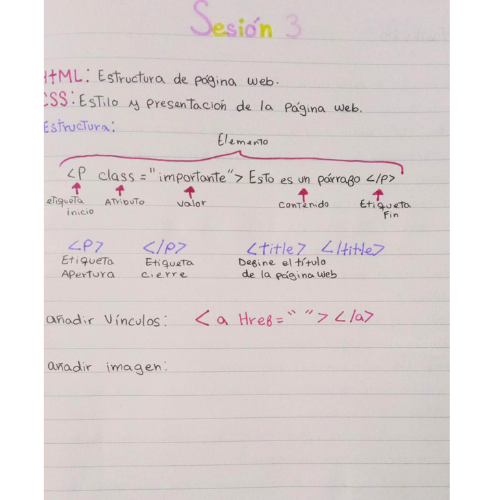 Sesión 3
HTML: Estructura de página web.
CSS: Estilo y presentación de la página web.
Estructura:
Elemento
<P class = "importante"> Esto es un párrafo </P>
etiqueta inicio Atributo valor contenido Etiqueta Fin
<P> </P> <title> </title>
Etiqueta Etiqueta Define el título
Apertura cierre de la página web
añadir Vínculos: <a Href=" "> </a>
añadir imagen: